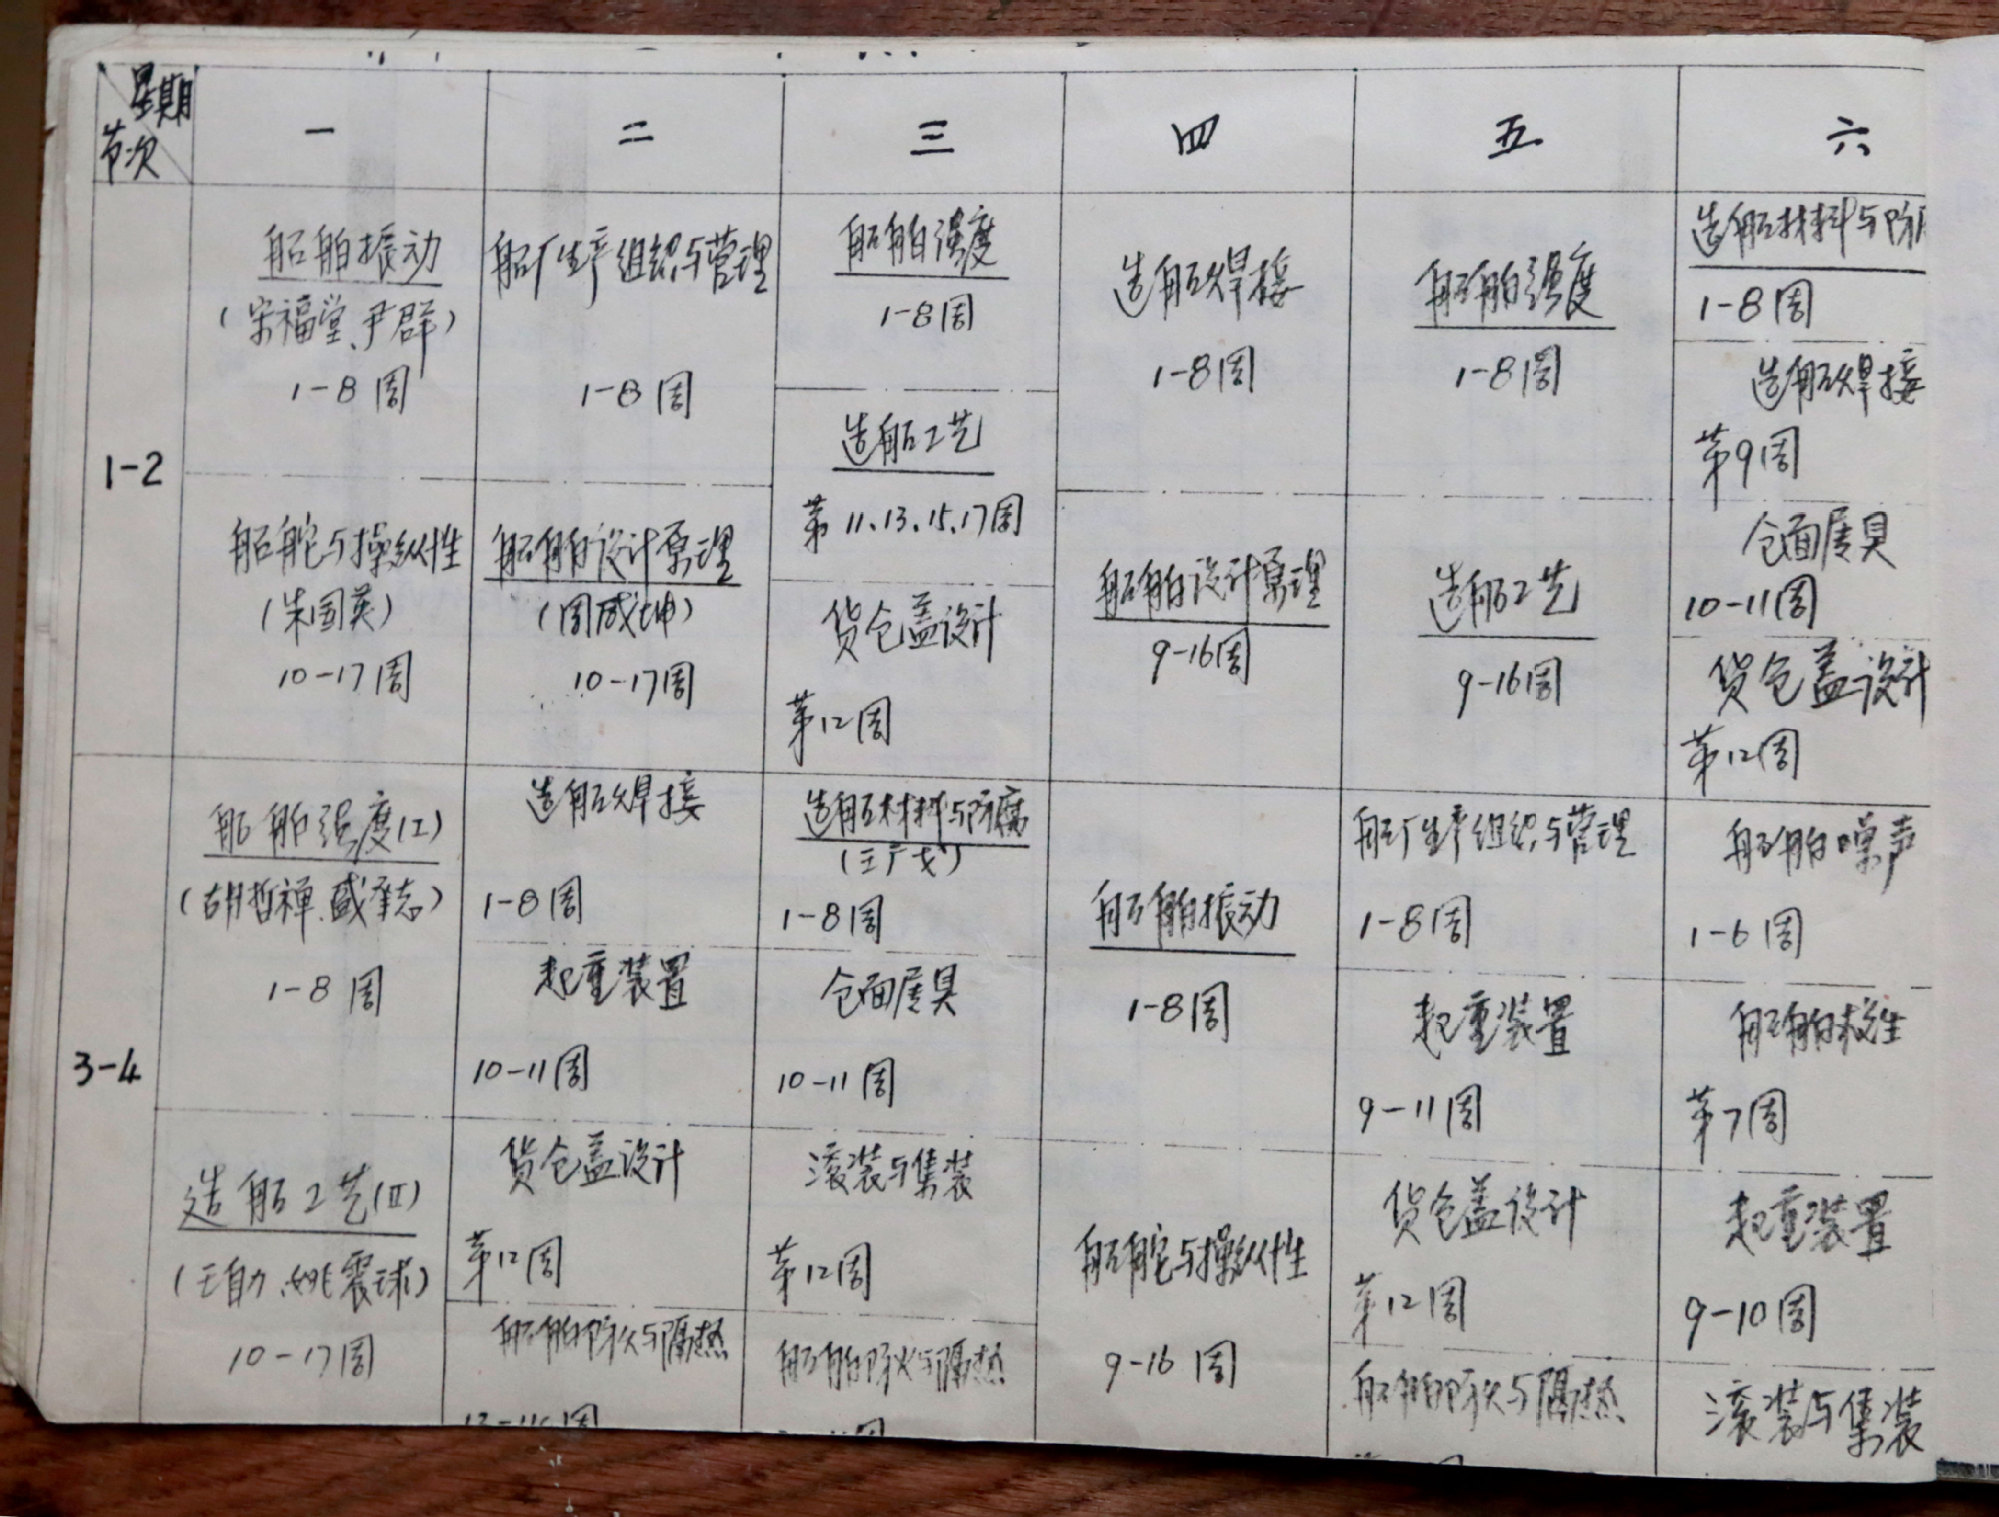 星期
节次
一
二
三
四
五
六
1-2
船舶振动
(宋福堂、尹群)
1-8周
船舵与操纵性
(朱国英)
10-17周
船厂生产组织与管理
1-8周
船舶设计原理
(周成坤)
10-17周
船舶强度
1-8周
造船工艺
第11.13.15.17周
货仓盖设计
第12周
造船焊接
1-8周
船舶设计原理
9-16周
船舶强度
1-8周
造船工艺
9-16周
造船材料与防
1-8周
造船焊接
第9周
仓面属具
10-11周
货仓盖设计
第12周
3-4
船舶强度(I)
(胡哲禅、盛承志)
1-8周
造船工艺(II)
(王自力、姚震球)
10-17周
造船焊接
1-8周
起重装置
10-11周
货仓盖设计
第12周
船舶防火与隔热
造船材料与防腐
1-8周
仓面属具
10-11周
滚装与集装
第12周
船舶防火与隔热
船舶振动
1-8周
船舵与操纵性
9-16周
船厂生产组织与管理
1-8周
起重装置
9-11周
货仓盖设计
第12周
船舶防火与隔热
船舶噪声
1-6周
船舶救生
第7周
起重装置
9-10周
滚装与集装